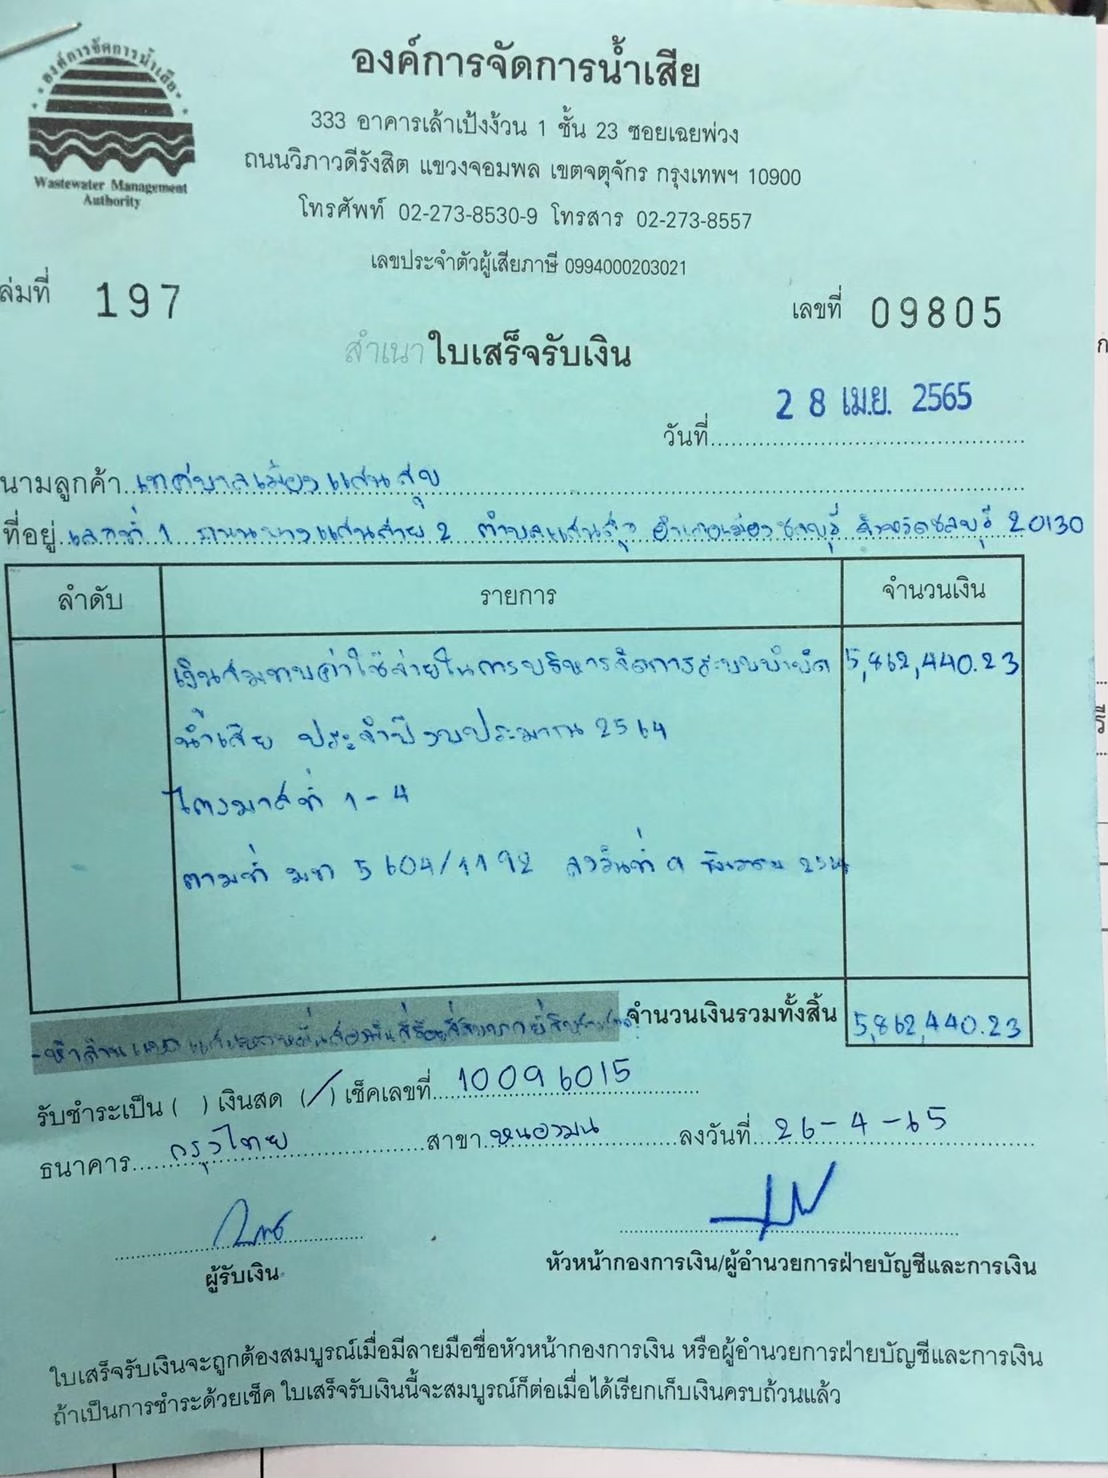 องค์การจัดการน้ำเสีย
Wastewater Management
Authority
องค์การจัดการน้ำเสีย
333 อาคารเล้าเป้งง้วน 1 ชั้น 23 ซอยเฉยพ่วง
ถนนวิภาวดีรังสิต แขวงจอมพล เขตจตุจักร กรุงเทพฯ 10900
โทรศัพท์ 02-273-8530-9 โทรสาร 02-273-8557
เลขประจำตัวผู้เสียภาษี 0994000203021
ล่มที่ 197 เลขที่ 09805
สำเนาใบเสร็จรับเงิน
วันที่ 28 เม.ย. 2565
นามลูกค้า เทศบาลเมืองแสนสุข
ที่อยู่ เลขที่ 1 ถนนบางแสนสาย 2 ตำบลแสนสุข อำเภอเมืองชลบุรี จังหวัดชลบุรี 20130
ลำดับ รายการ จำนวนเงิน
เงินสมทบค่าใช้จ่ายในการบริหารจัดการระบบบำบัด 5,862,440.23
น้ำเสีย ประจำปีงบประมาณ 2564
ไตรมาสที่ 1-4
ตามที่ มท 5604/1192 ลงวันที่ 9 ธันวาคม 2564
จำนวนเงินรวมทั้งสิ้น 5,862,440.23
รับชำระเป็น ( ) เงินสด (/) เช็คเลขที่ 10096015
ธนาคาร กรุงไทย สาขา หนองมน ลงวันที่ 26-4-65
ผู้รับเงิน หัวหน้ากองการเงิน/ผู้อำนวยการฝ่ายบัญชีและการเงิน
ใบเสร็จรับเงินจะถูกต้องสมบูรณ์เมื่อมีลายมือชื่อหัวหน้ากองการเงิน หรือผู้อำนวยการฝ่ายบัญชีและการเงิน
ถ้าเป็นการชำระด้วยเช็ค ใบเสร็จรับเงินนี้จะสมบูรณ์ก็ต่อเมื่อได้เรียกเก็บเงินครบถ้วนแล้ว